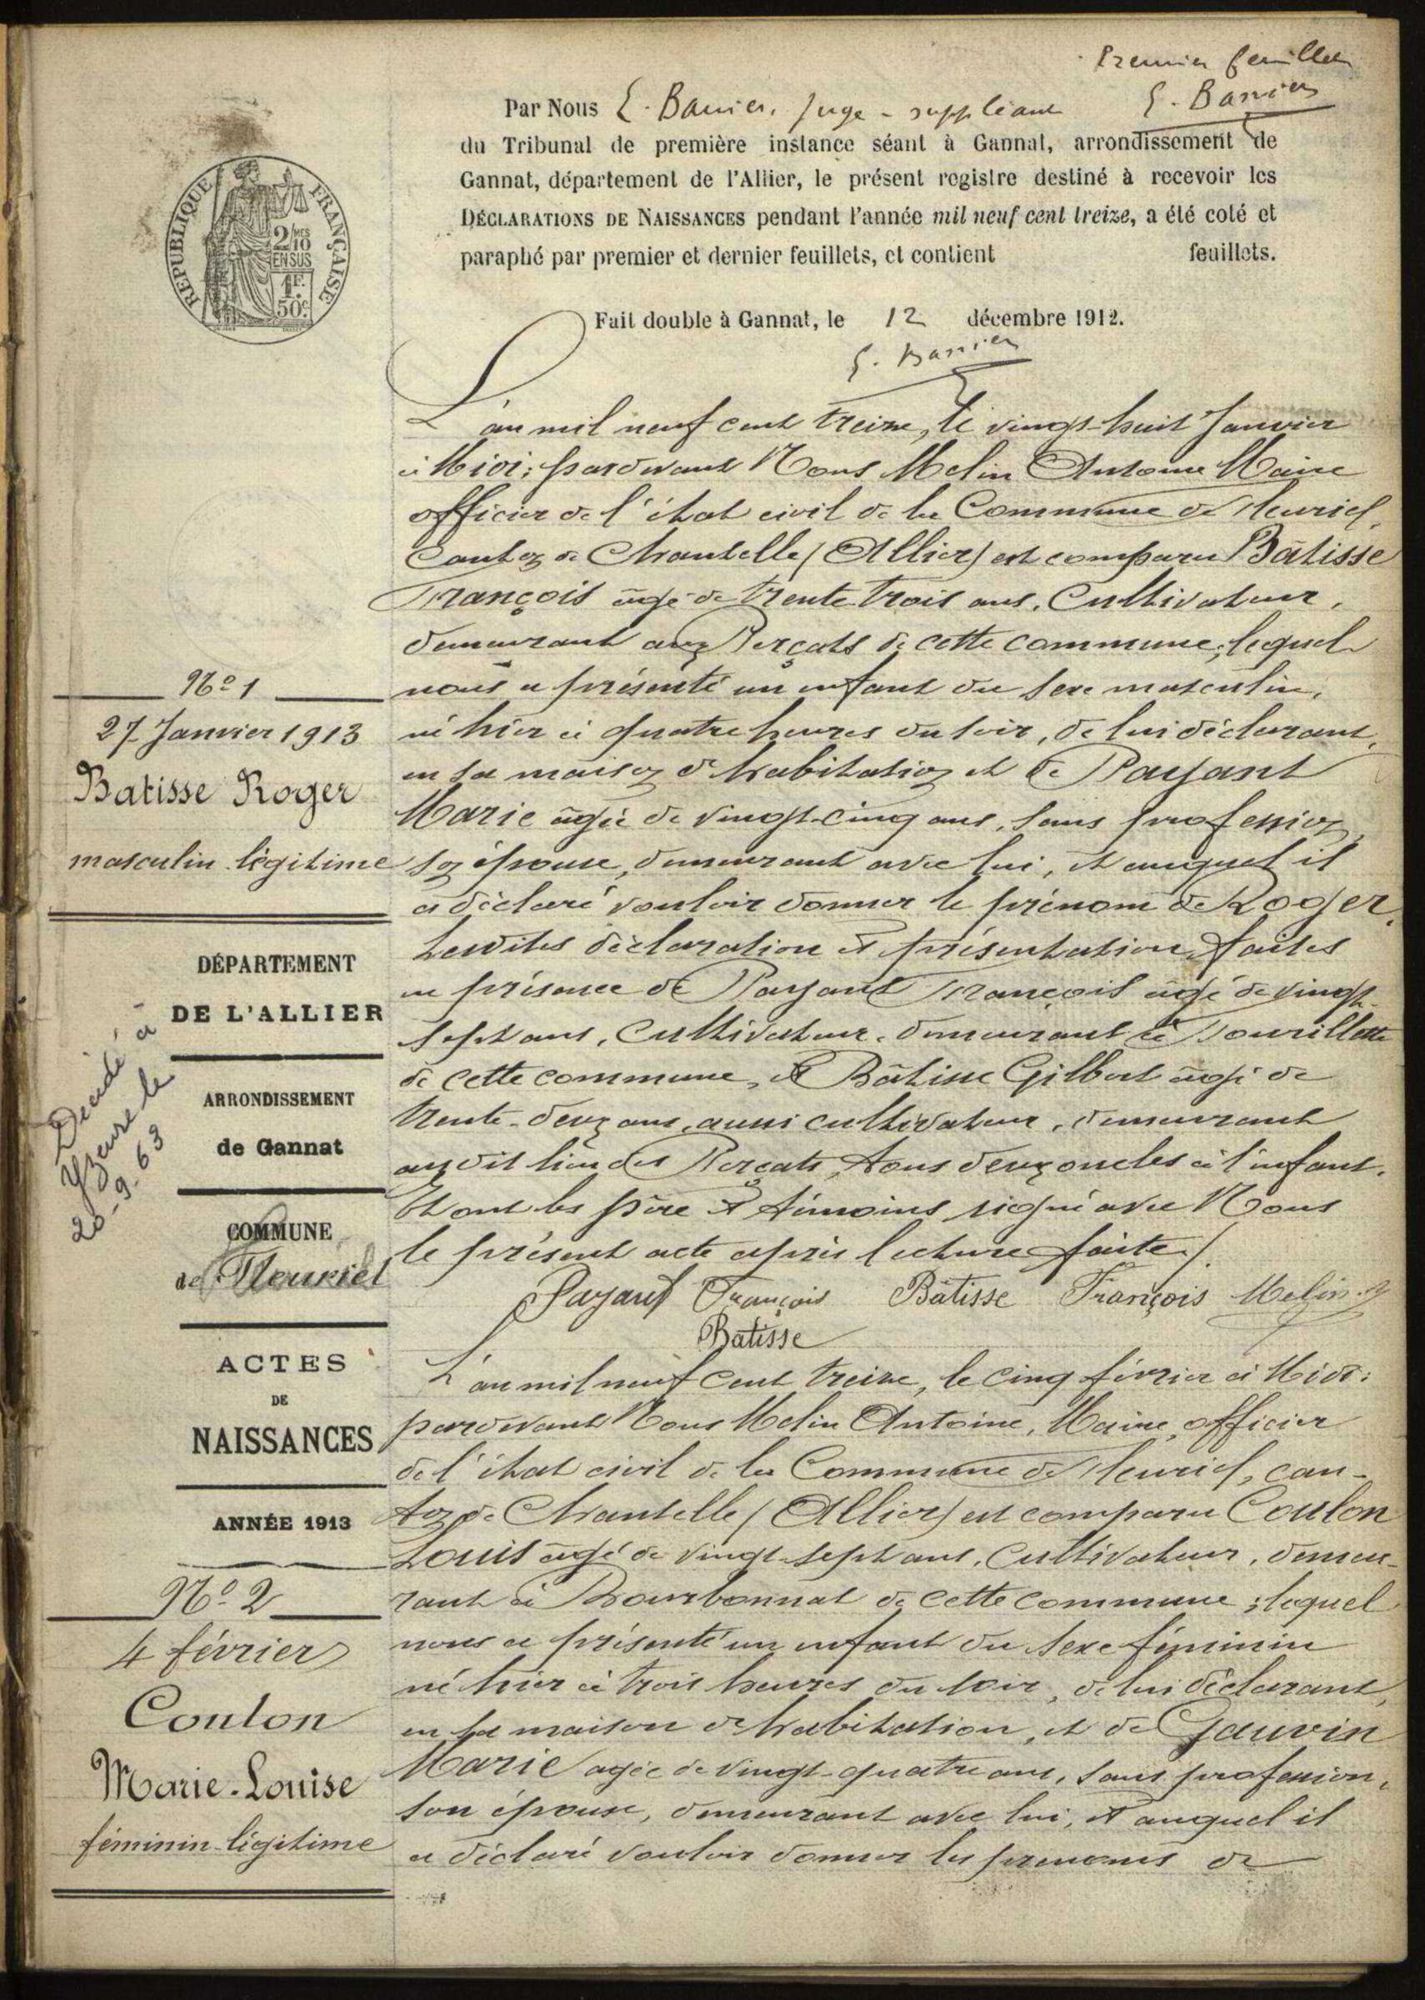 Premier feuillet
E. Barrier
Par Nous E. Barrier, juge-suppléant
du Tribunal de première instance séant à Gannat, arrondissement de
Gannat, département de l'Allier, le présent registre destiné à recevoir les
DÉCLARATIONS DE NAISSANCES pendant l'année mil neuf cent treize, a été coté et
paraphé par premier et dernier feuillets, et contient feuillets.
Fait double à Gannat, le 12 décembre 1912.
E. Barrier
RÉPUBLIQUE FRANÇAISE
2/10 MES
EN SUS
1F.
50c.
L'an mil neuf cent treize, le vingt-huit Janvier
à Midi; pardevant Nous Melin Antoine Maire
officier de l'état civil de la Commune de Fleuriel,
Canton de Chantelle (Allier) est comparu Bâtisse
François âgé de trente-trois ans, Cultivateur,
demeurant aux Perçats de cette commune; lequel
nous a présenté un enfant du sexe masculin,
né hier à quatre heures du soir, de lui déclarant,
en sa maison d'habitation et de Payant
Marie âgée de vingt-cinq ans, sans profession,
son épouse, demeurant avec lui, et auquel il
a déclaré vouloir donner le prénom de Roger.
Lesdites déclaration et présentation faites
en présence de Payant François âgé de vingt-
sept ans, Cultivateur, demeurant à
de cette commune, et Bâtisse Gilbert âgé de
trente-deux ans, aussi cultivateur, demeurant
audit lieu des Perçats, tous deux oncles à l'enfant.
Et ont les père et témoins signé avec Nous
le présent acte après lecture faite.
Payant François Bâtisse François Melin
Batisse
No 1
27 Janvier 1913
Batisse Roger
masculin légitime
DÉPARTEMENT
DE L'ALLIER
ARRONDISSEMENT
de Gannat
COMMUNE
de Fleuriel
ACTES
DE
NAISSANCES
ANNÉE 1913
Décédé à
Yzeure le
20-9-63
No 2
4 février
Coulon
Marie-Louise
féminin légitime
L'an mil neuf cent treize, le cinq février à Midi;
pardevant Nous Melin Antoine, Maire, officier
de l'état civil de la Commune de Fleuriel, can-
ton de Chantelle (Allier) est comparu Coulon
Louis âgé de vingt-sept ans, Cultivateur, demeu-
rant à Bourbonnat de cette commune; lequel
nous a présenté un enfant du sexe féminin
né hier à trois heures du soir, de lui déclarant,
en sa maison d'habitation, et de Gauvin
Marie agée de vingt-quatre ans, sans profession,
son épouse, demeurant avec lui, et auquel il
a déclaré vouloir donner les prénoms de